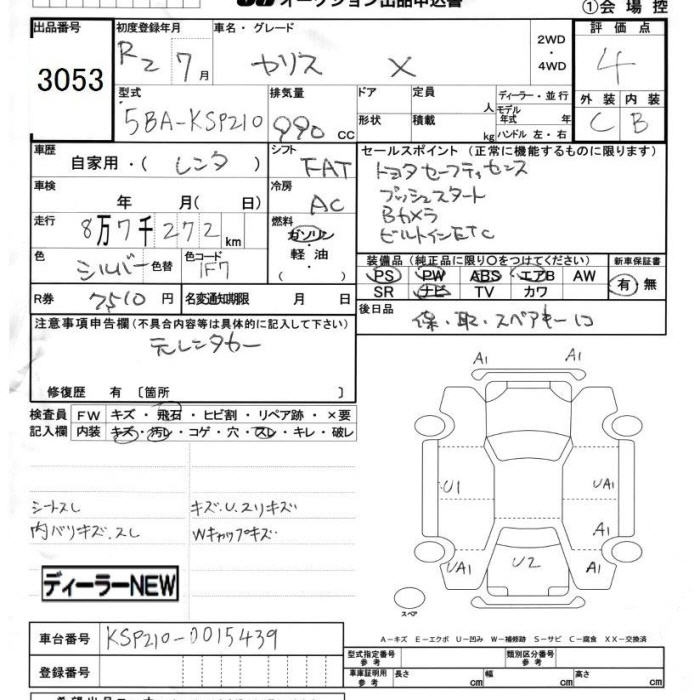 オークション出品申込書
①会場控
出品番号 初度登録年月 車名・グレード 評価点
3053 R2 7月 ヤリス X 2WD・4WD 4
型式 排気量 ドア 定員 人 ディーラー・並行 外装 内装
5BA-KSP210 990cc 形状 積載 kg モデル年式 年 ハンドル 左・右 C B
車歴 自家用・(レンタ) シフト FAT セールスポイント (正常に機能するものに限ります)
車検 年 月(日) 冷房 AC トヨタセーフティセンス
プッシュスタート
走行 8万7千272km 燃料 ガソリン・軽油・( ) Bカメラ
ビルトインETC
色 シルバー 色替 色コード 1F7 装備品(純正品に限り○をつけてください) 新車保証書
PS PW ABS エアB AW 有・無
R券 7510円 名変通知期限 月 日 SR ナビ TV カワ
注意事項申告欄(不具合内容等は具体的に記入して下さい) 後日品 保・取・スペアキー1コ
元レンタカー
修復歴 有〔箇所 〕
検査員 FW キズ・飛石・ヒビ割・リペア跡・×要
記入欄 内装 キズ・汚レ・コゲ・穴・スレ・キレ・破レ
シートスレ キズ.U.スリキズ
内バリキズ.スレ Wキャップキズ
A1 A1
U1 UA1
A1
UA1 U2 A1
スペア
ディーラーNEW
A−キズ E−エクボ U−凹み W−補修跡 S−サビ C−腐食 XX−交換済
車台番号 KSP210-0015439
型式指定番号 参考 類別区分番号 参考
登録番号 車庫証明用 参考 長さ cm 幅 cm 高さ cm